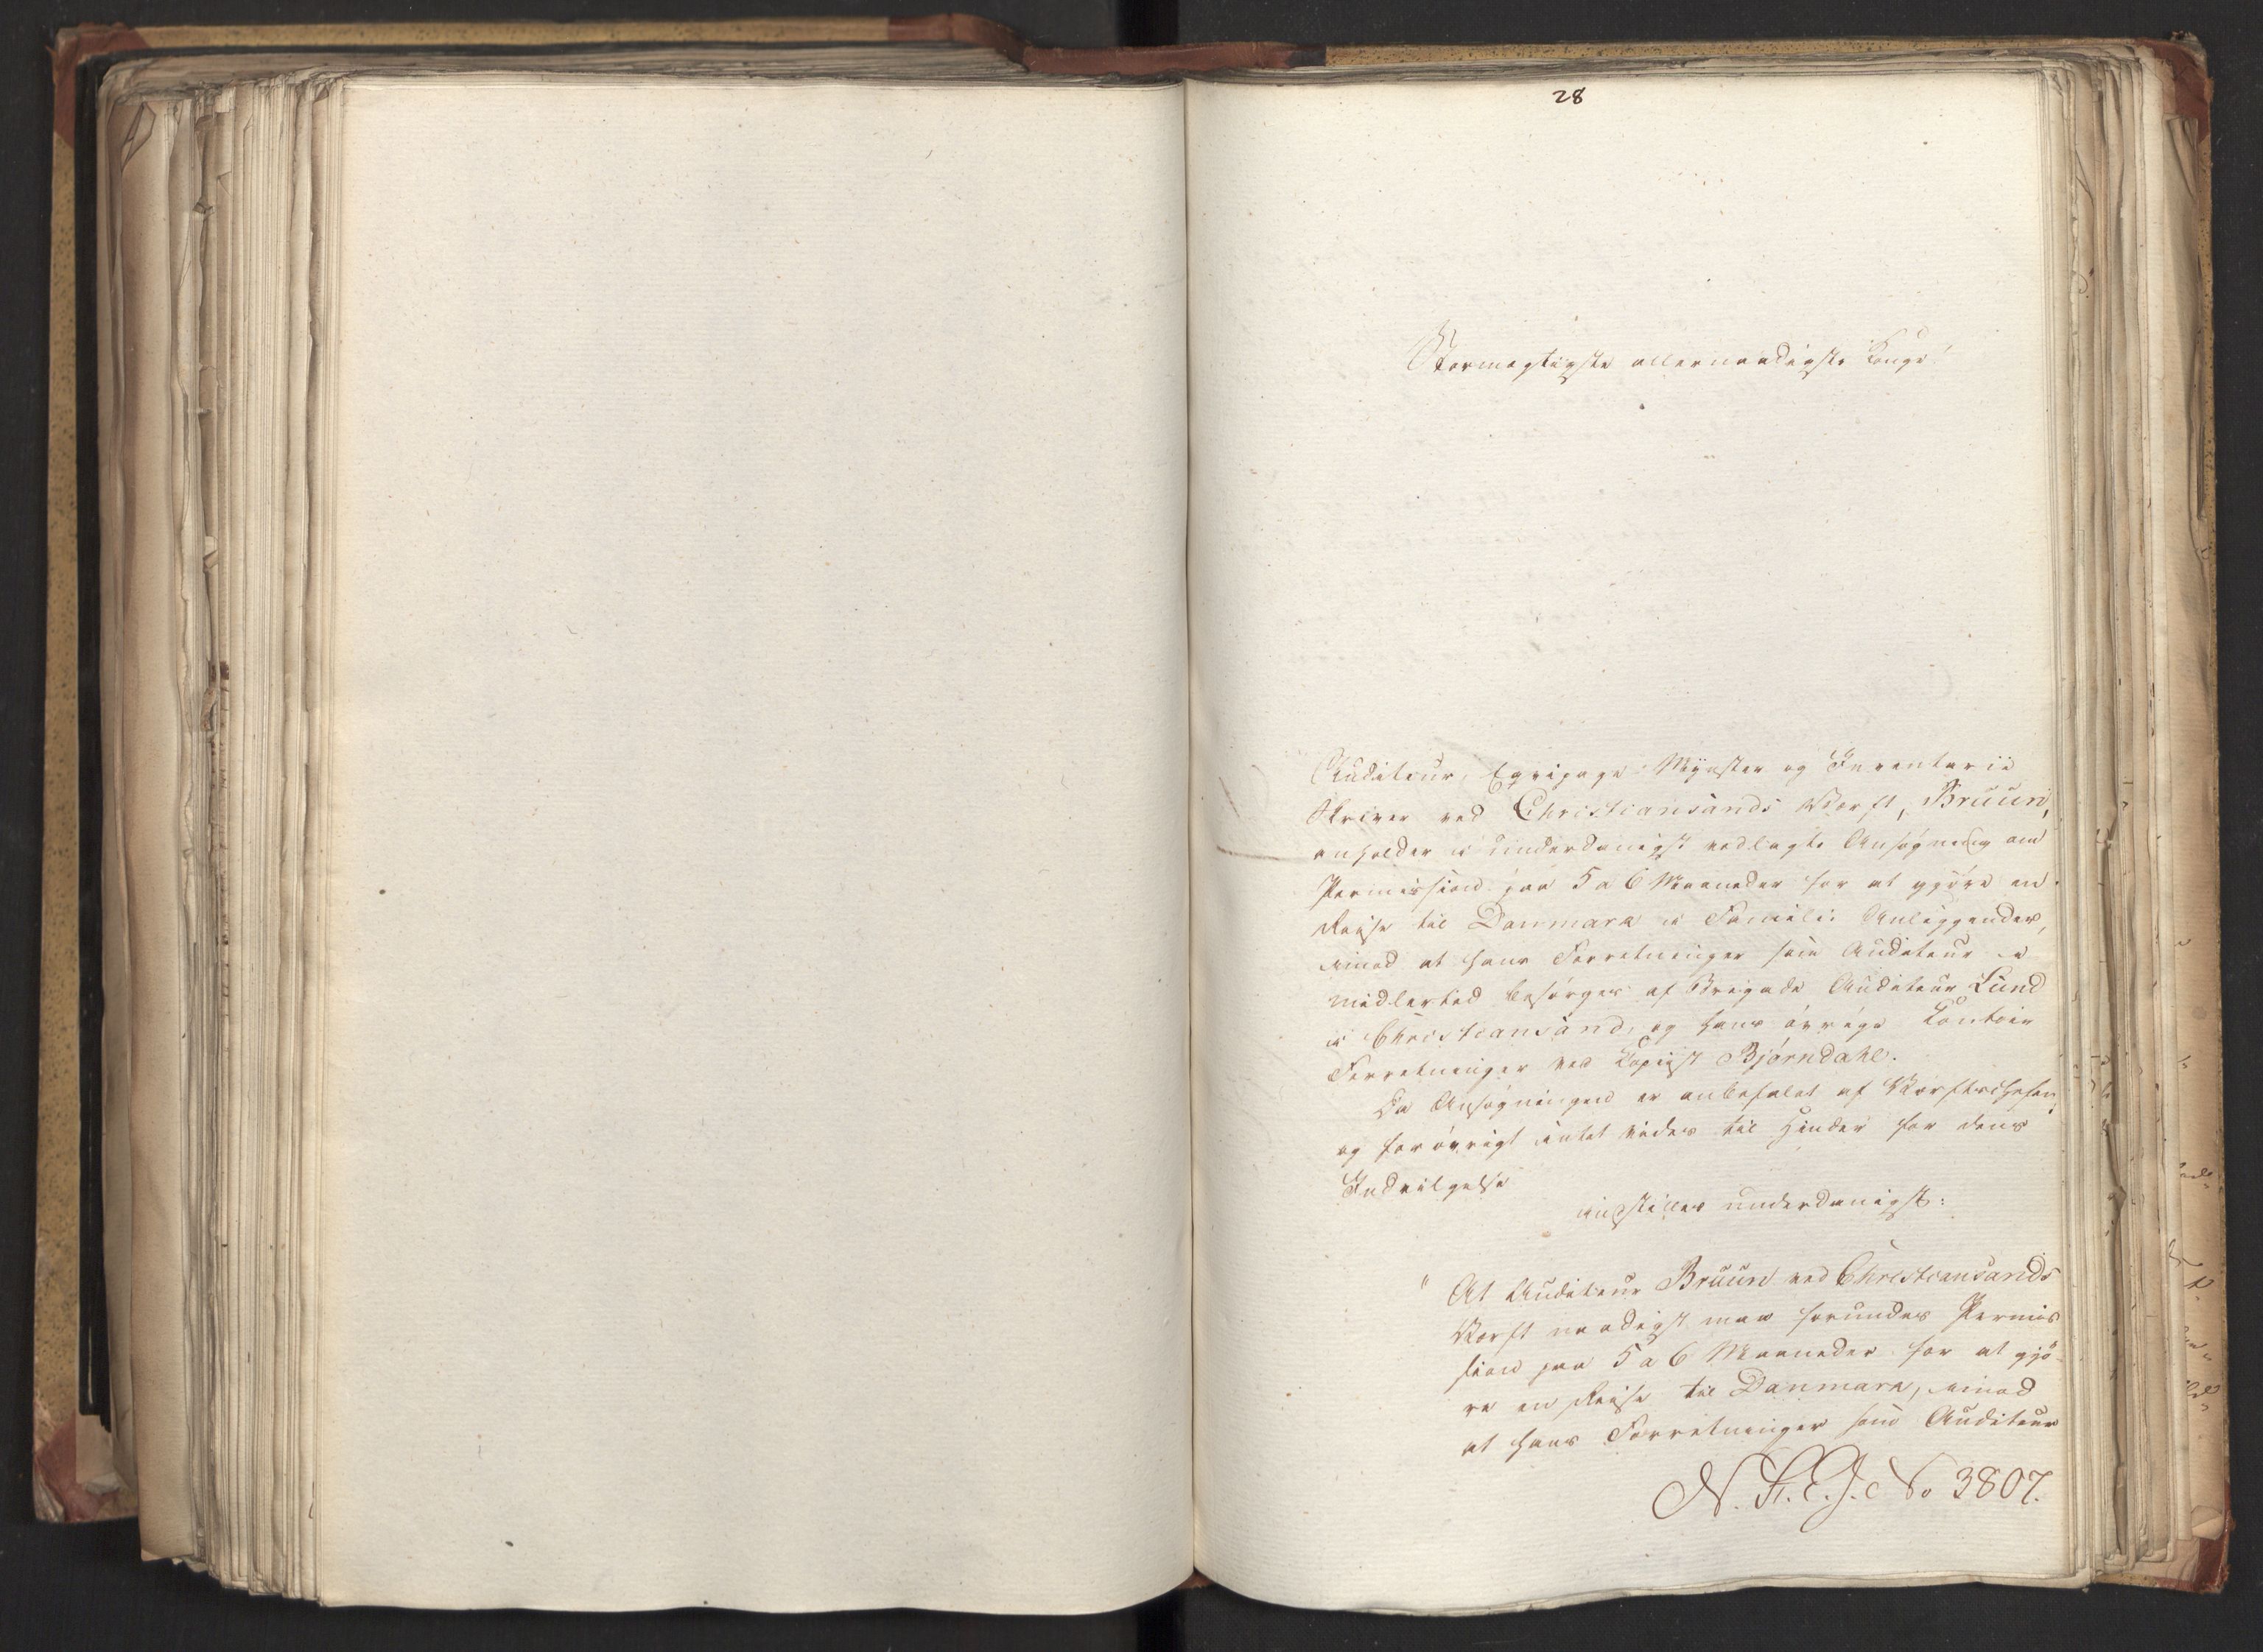 28
Stormægtigste allernaadigste Konge!
Auditeur, Eqvipage- Mynster og Inventarii
Skriver ved Christiansands Værft, Bruun,
anholder i underdanigst vedlagte Ansøgning om
Permission paa 5 a 6 Maaneder for at gjöre en
Reise til Danmark i Familie Anliggender,
imod at hans Forretninger som Auditeur i
midlertid besörges af Brigade Auditeur Lund
i Christiansand, og hans övrige Contoir
Forretninger ved Copiist Bjørndahl.
Da Ansøgningen er anbefalet af Værftschefen,
og forövrigt intet vides til Hinder for dens
Indvilgelse
indstilles underdanigst:
" At Auditeur Bruun ved Christiansands
Værft naadigst maa forundes Permis
sion paa 5 a 6 Maaneder for at gjö-
re en Reise til Danmark, imod
at hans Forretninger som Auditeur
N. F. E. J. No 3807.